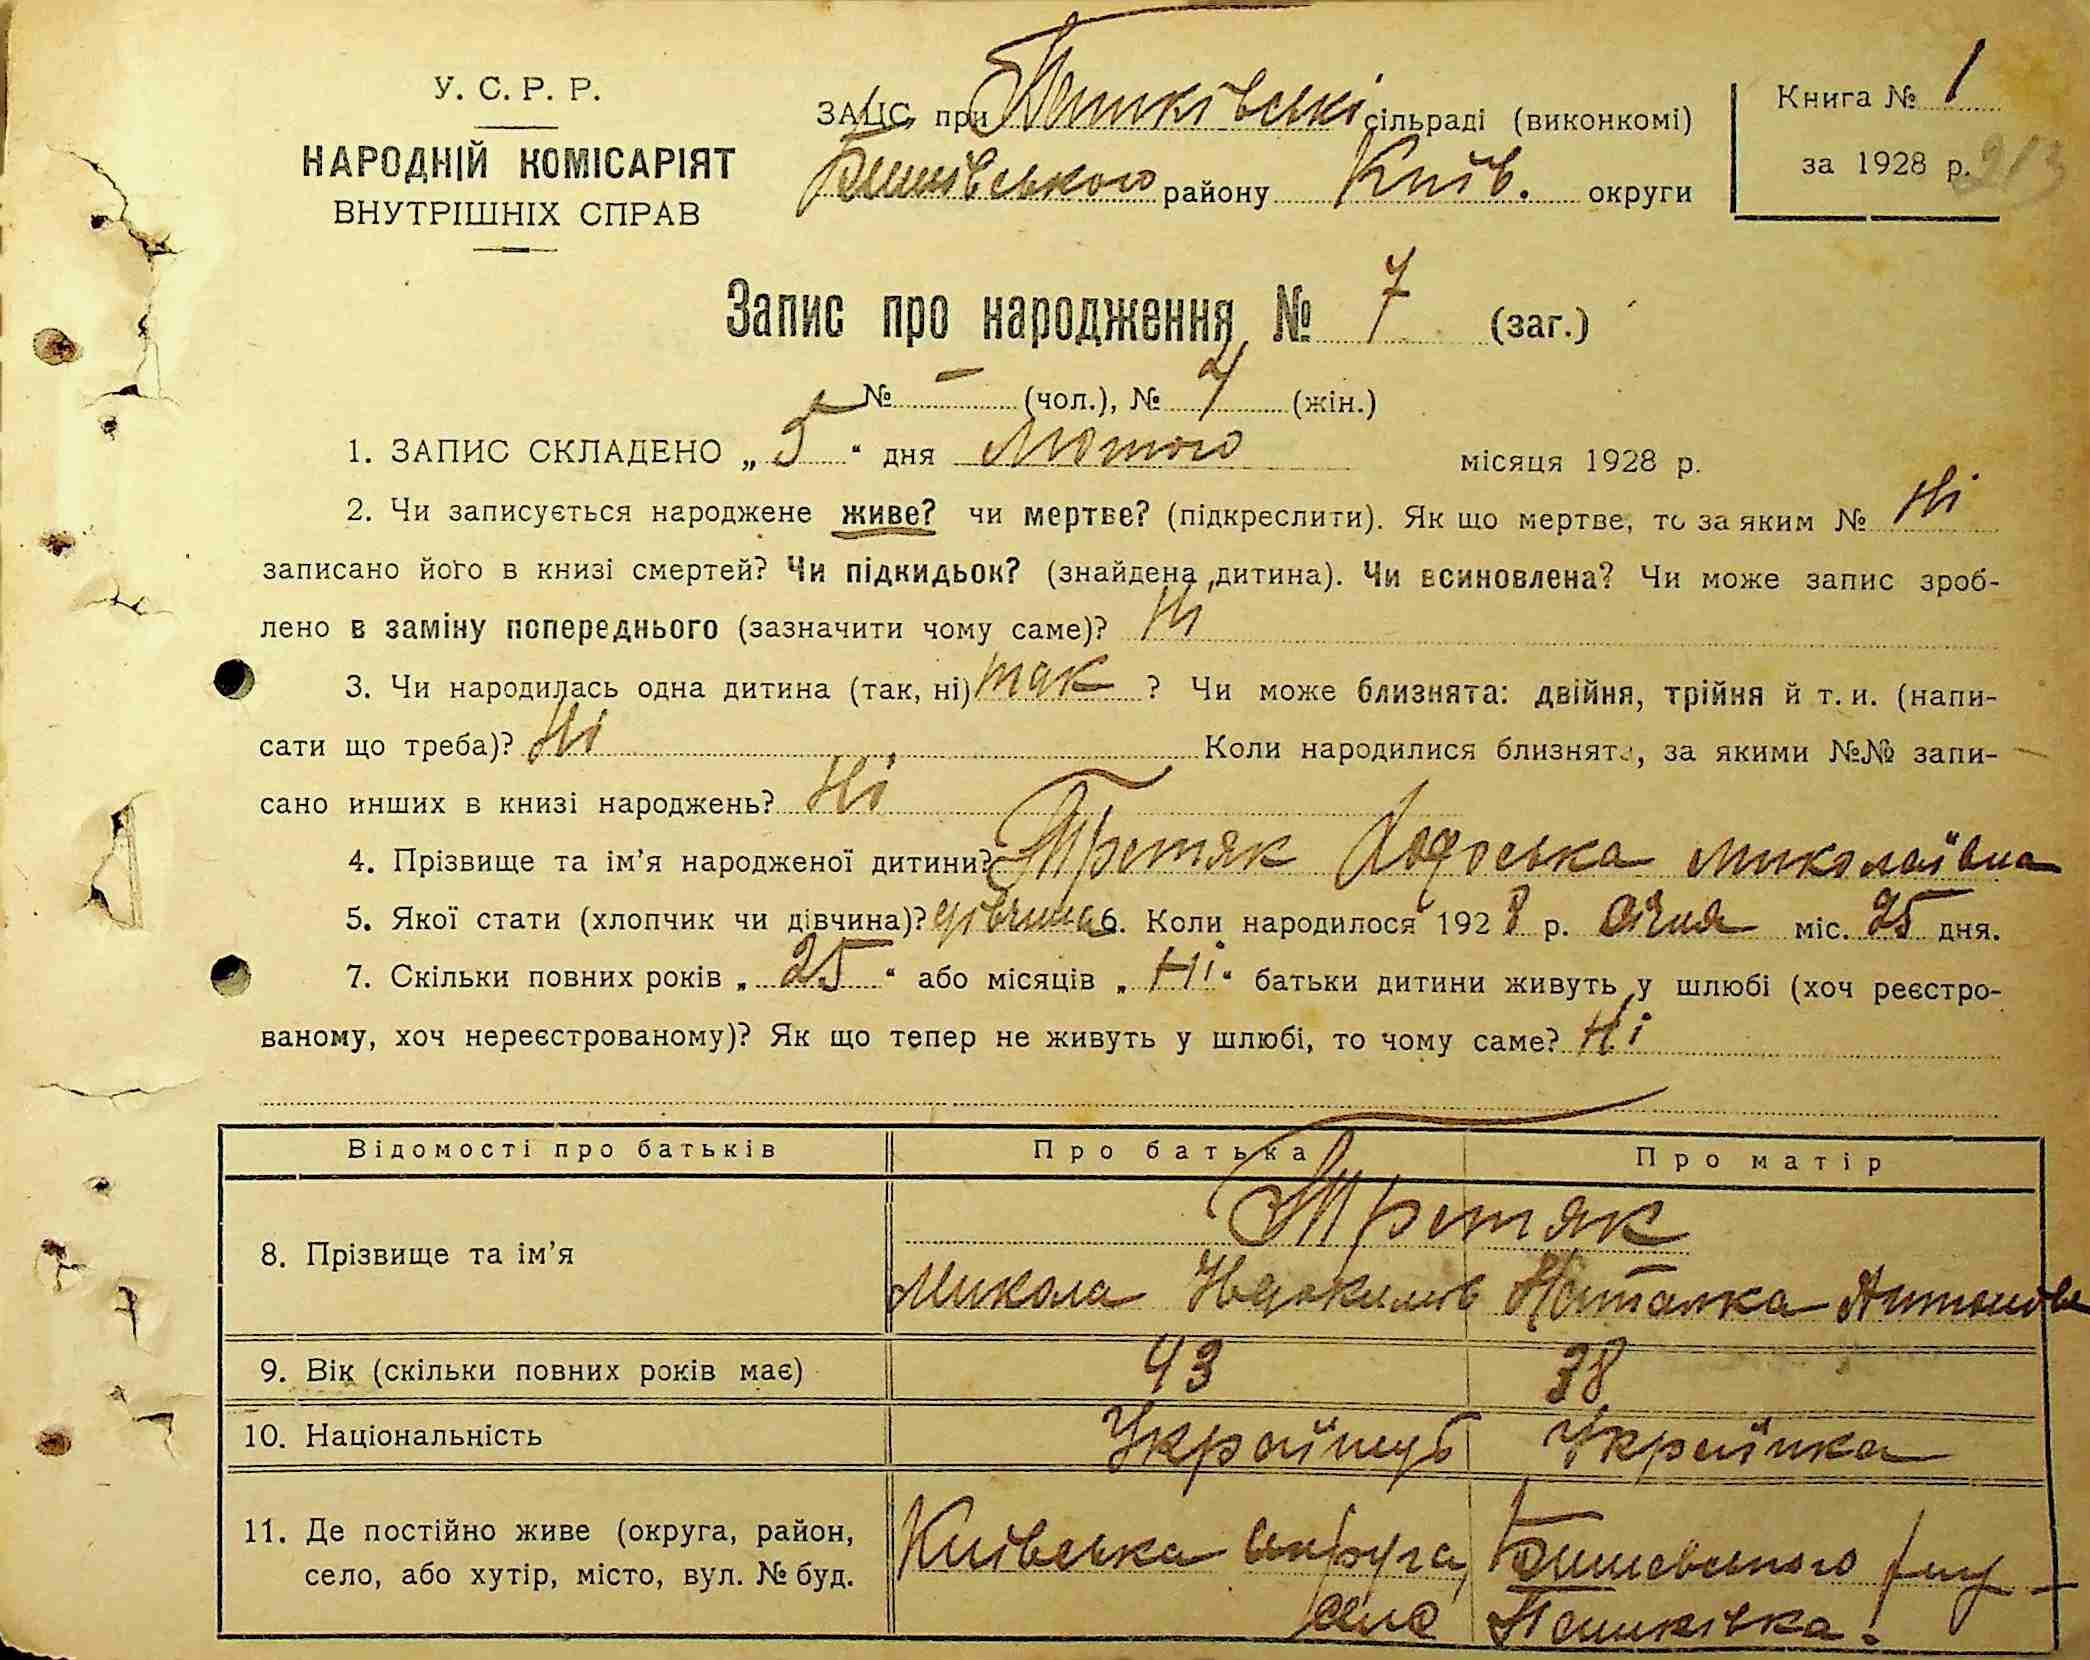 У. С. Р. Р.
НАРОДНІЙ КОМІСАРІЯТ
ВНУТРІШНІХ СПРАВ
ЗАЦС при Пашківські сільраді (виконкомі)
Бишівського району Київ. округи
Книга № 1
за 1928 р. 213
Запис про народження № 7 (заг.)
№ — (чол.), № 4 (жін.)
1. ЗАПИС СКЛАДЕНО „ 5 “ дня Лютого місяця 1928 р.
2. Чи записується народжене живе? чи мертве? (підкреслити). Як що мертве, то за яким № Ні
записано його в книзі смертей? Чи підкидьок? (знайдена дитина). Чи всиновлена? Чи може запис зроб-
лено в заміну попереднього (зазначити чому саме)? Ні
3. Чи народилась одна дитина (так, ні) так ? Чи може близнята: двійня, трійня й т. и. (напи-
сати що треба)? Ні Коли народилися близнята, за якими №№ запи-
сано инших в книзі народжень? Ні
4. Прізвище та ім’я народженої дитини? Третяк Ходоська Миколаївна
5. Якої стати (хлопчик чи дівчина)? дівчина 6. Коли народилося 1928 р. січня міс. 25 дня.
7. Скільки повних років „ 25 “ або місяців „ Ні “ батьки дитини живуть у шлюбі (хоч реєстро-
ваному, хоч нереєстрованому)? Як що тепер не живуть у шлюбі, то чому саме? Ні
Відомості про батьків Про батька Про матір
Третяк
8. Прізвище та ім’я
Микола Наталка Антонова
9. Вік (скільки повних років має) 43 38
10. Національність Українець Українка
11. Де постійно живе (округа, район, Київська округа, Бишевського рну
село, або хутір, місто, вул. № буд. село Пашківка.